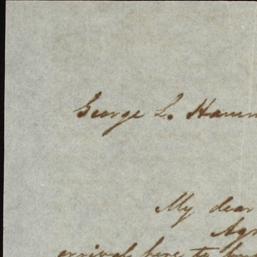 George L. Ham
My dear
Agr
arrival here to